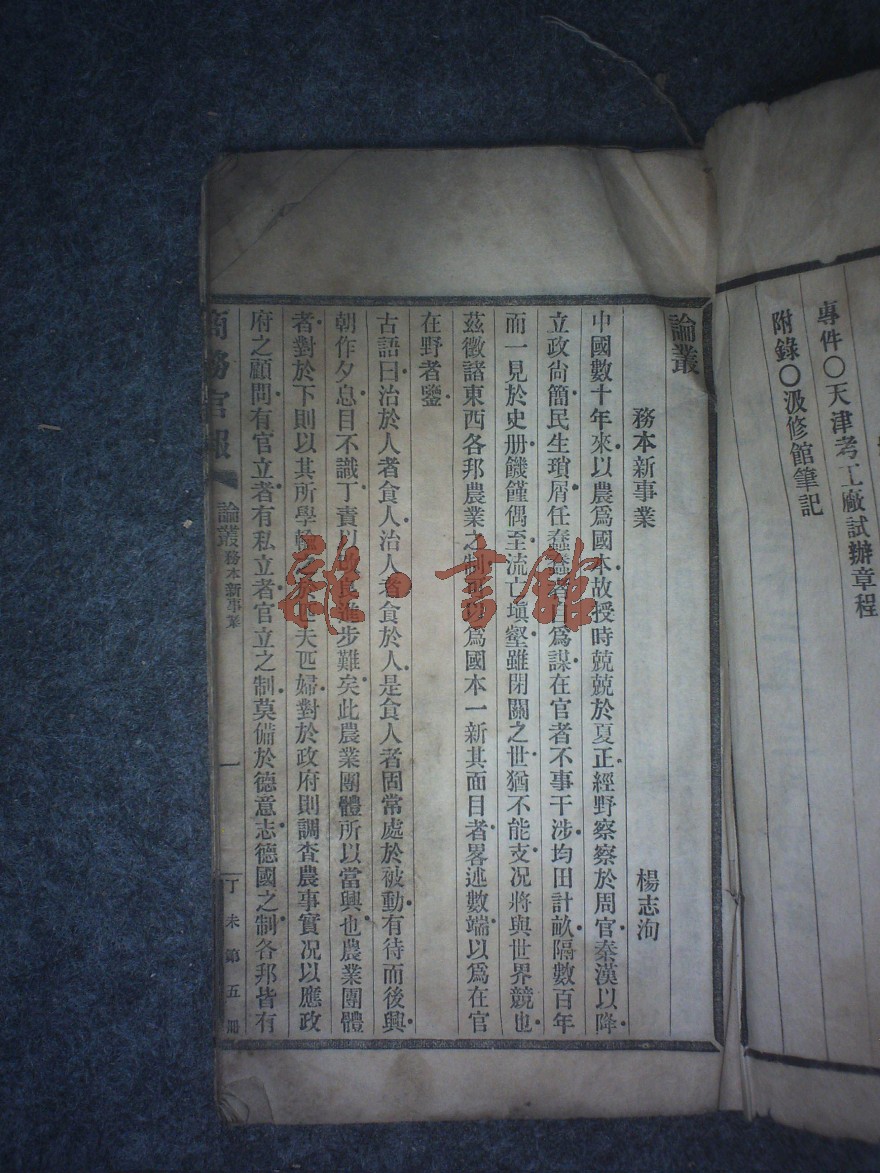 專件〇天津考工廠試辦章程
附錄〇汲修館筆記
論叢
務本新事業 楊志洵
中國數十年來以農爲國本故授時兢兢於夏正經野察察於周官秦漢以降
立政尙簡民生瑣屑任蠢蠢者自爲謀在官者不事干涉均田計畝隔數百年
而一見於史册饑饉偶至流亡塡壑雖閉關之世猶不能支况將與世界競也
茲徵諸東西各邦農業之制可以爲國本一新其面目者畧述數端以爲在官
在野者鑒
古語曰治於人者食人治人者食於人是食人者固常處於被動有待而後興
朝作夕息目不識丁責以改良進步難矣此農業團體所以當興也農業團體
者對於下則以其所學輸之於匹夫匹婦對於政府則調査農事實况以應政
府之顧問有官立者有私立者官立之制莫備於德意志德國之制各邦皆有
商務官報 論叢 務本新事業 一 丁未第五冊
雜·書館